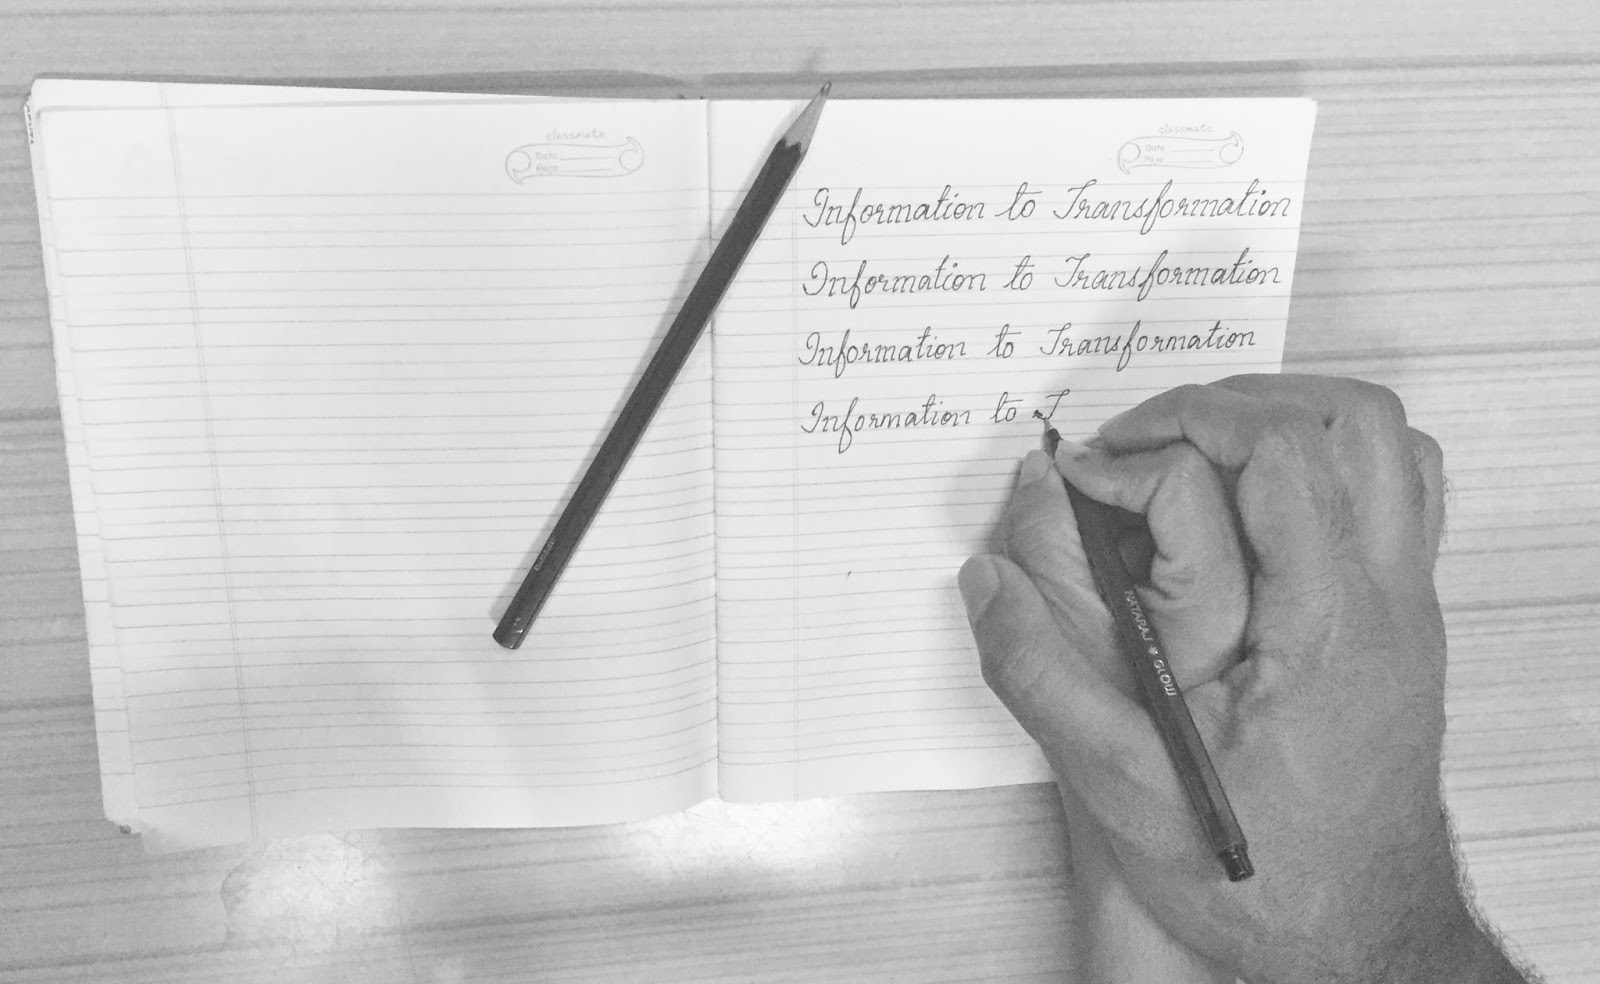 classmate
Date
Page
classmate
Date
Page
Information to Transformation
Information to Transformation
Information to Transformation
Information to T
NATARAJ GLOW